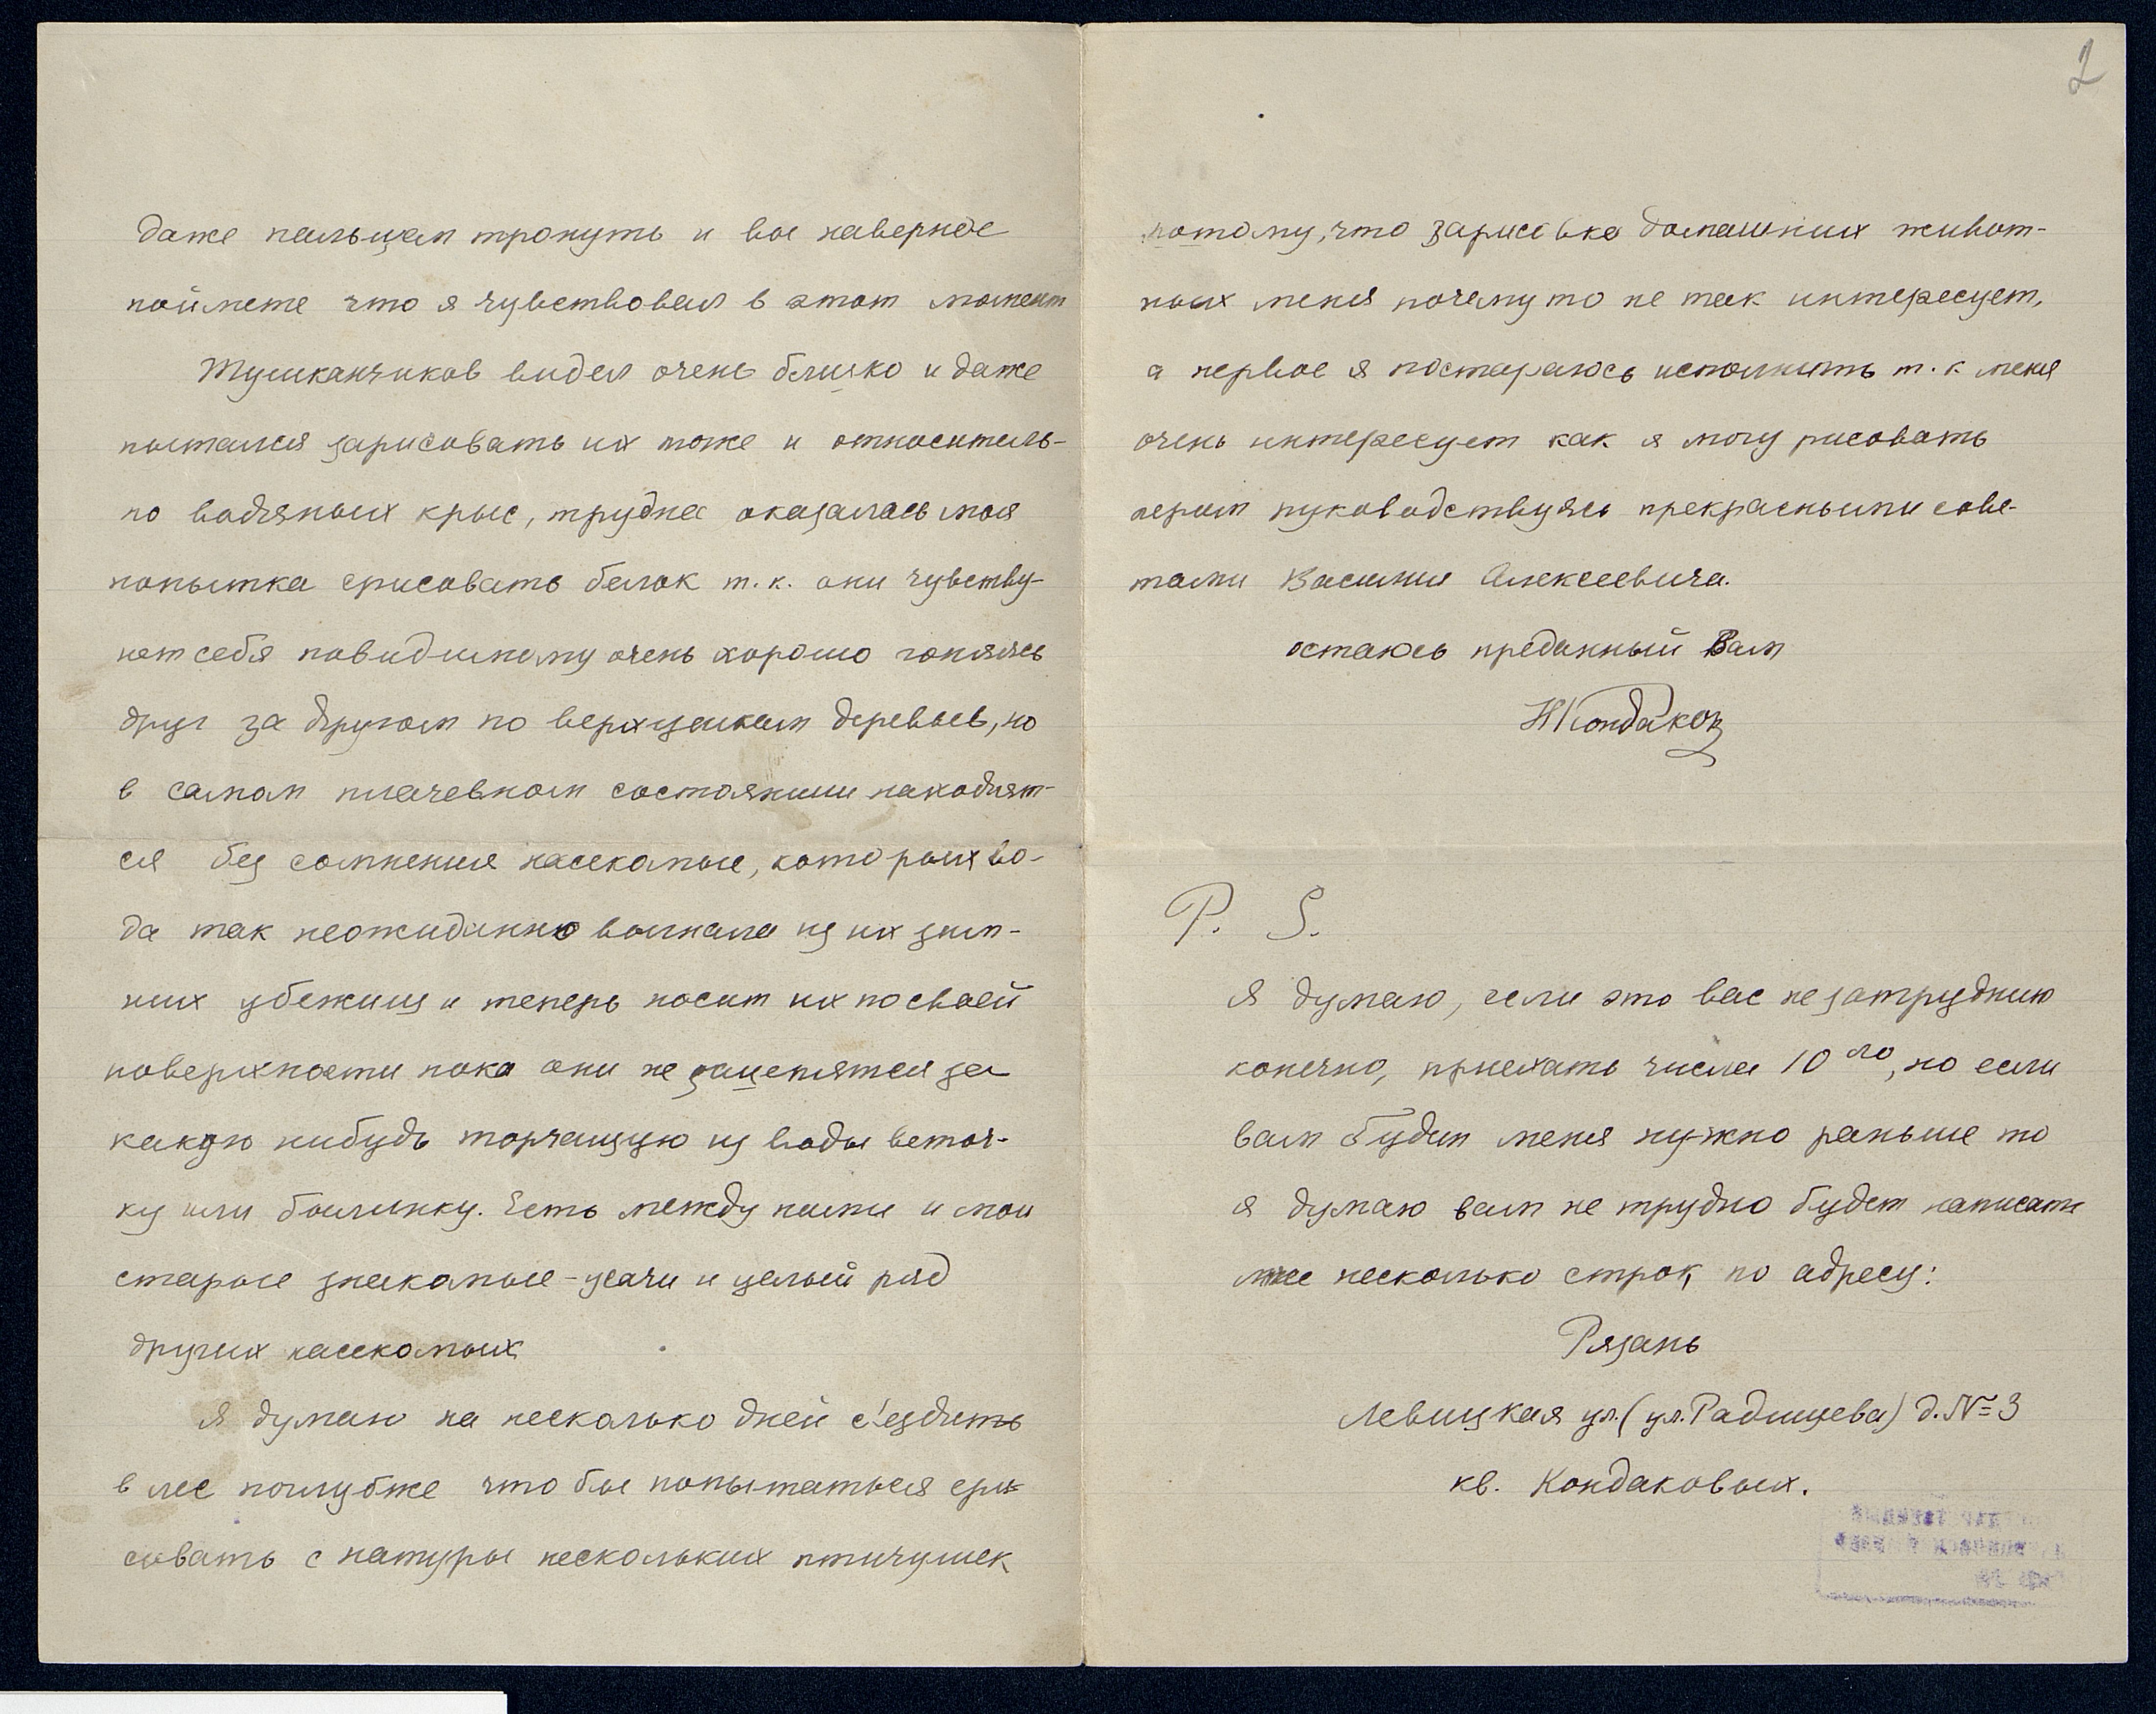 2
даже пальцем тронуть и вы наверное
поймете что я чувствовал в этот момент
Тушканчиков видел очень близко и даже
пытался зарисовать их тоже и относитель-
но водяных крыс, трудна оказалась моя
попытка срисовать белок т.к. они чувству-
ют себя повидимому очень хорошо гоняясь
друг за другом по верхушкам деревьев, но
в самом плачевном состоянии находят-
ся без сомнения насекомые, которых во-
да так неожиданно выгнала из их зим-
них убежищ и теперь носит их по своей
поверхности пока они не зацепятся за
какую нибудь торчащую из воды веточ-
ку или былинку. Есть между ними и мои
старые знакомые-усачи и целый ряд
других насекомых
Я думаю на несколько дней с'ездить
в лес поглубже что бы попытаться сри-
совать с натуры нескольких птичушек
потому, что зарисовка домашних живот-
ных меня почему то не так интересует,
а первое я постараюсь исполнить т.к меня
очень интересует как я могу рисовать
пером руководствуясь прекрасными сове-
тами Василия Алексеевича.
остаюсь преданный Вам
НКондаков
P. S.
Я думаю, если это вас не затрудню
конечно, приехать числа 10 го, но если
вам будит меня нужно раньше то
я думаю вам не трудно будет написать
мне несколько строк, по адресу:
Рязань
Левицкая ул. (ул. Радищева) д. № 3
кв. Кондаковых.